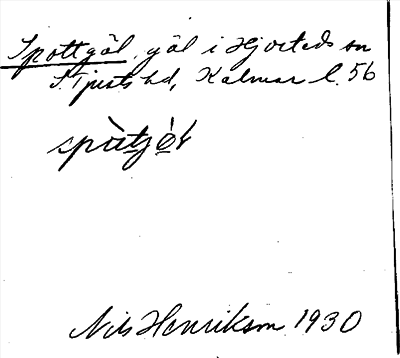 Spottgöl, göl i Hjorteds sn
S. Tjusts hd, Kalmar l. 56
spùtjö̀l
Nils Henrikson 1930